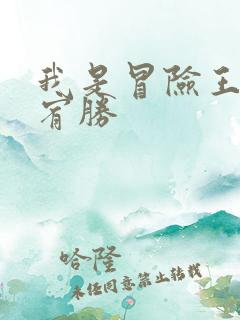 我是冒險王
宥勝
哈隆
未经同意禁止转载